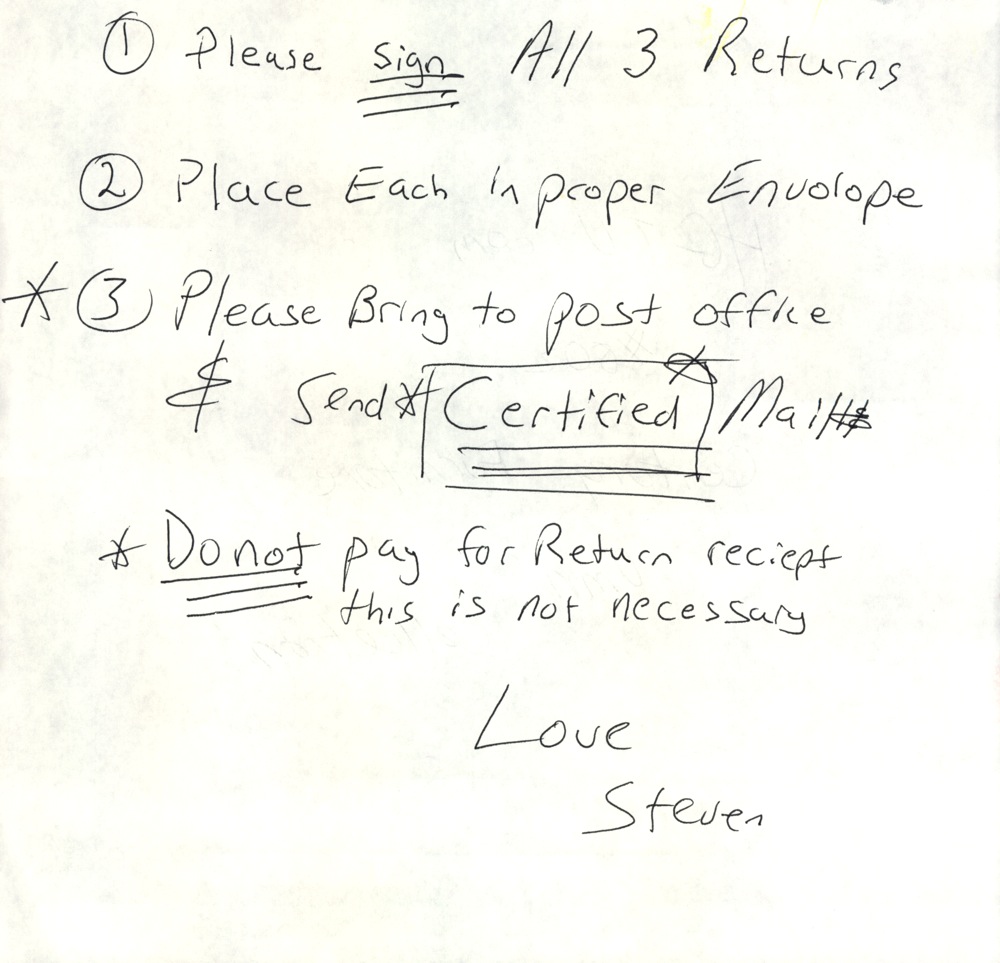 ① Please sign All 3 Returns
② Place Each in proper Envolope
* ③ Please Bring to post office
& Send * Certified * Mail
* Do not pay for Return reciept
this is not necessary
Love
Steven